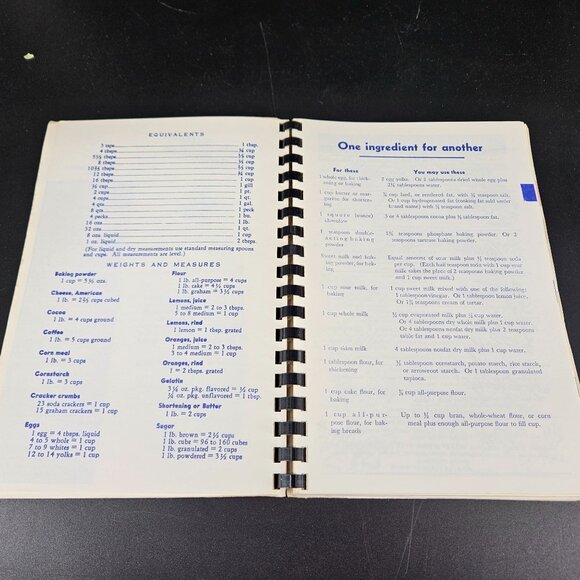 EQUIVALENTS
3 tsps. 1 tbsp.
4 tbsps. ¼ cup
5⅓ tbsps. ⅓ cup
8 tbsps. ½ cup
10⅔ tbsps. ⅔ cup
12 tbsps. ¾ cup
16 tbsps. 1 cup
½ cup 1 gill
2 cups 1 pt.
4 cups 1 qt.
4 qts. 1 gal.
8 qts. 1 peck
4 pecks 1 bu.
16 oz. 1 lb.
32 oz. 1 qt.
8 oz. liquid 1 cup
1 oz. liquid 2 tbsps.
(For liquid and dry measurements use standard measuring spoons
and cups. All measurements are level.)
WEIGHTS AND MEASURES
Baking powder
1 cup = 5½ ozs.
Cheese, American
1 lb. = 2⅔ cups cubed
Cocoa
1 lb. = 4 cups ground
Coffee
1 lb. = 5 cups ground
Corn meal
1 lb. = 3 cups
Cornstarch
1 lb. = 3 cups
Cracker crumbs
23 soda crackers = 1 cup
15 graham crackers = 1 cup
Eggs
1 egg = 4 tbsps. liquid
4 to 5 whole = 1 cup
7 to 9 whites = 1 cup
12 to 14 yolks = 1 cup
Flour
1 lb. all-purpose = 4 cups
1 lb. cake = 4½ cups
1 lb. graham = 3½ cups
Lemons, juice
1 medium = 2 to 3 tbsps.
5 to 8 medium = 1 cup
Lemons, rind
1 lemon = 1 tbsp. grated
Oranges, juice
1 medium = 2 to 3 tbsps.
3 to 4 medium = 1 cup
Oranges, rind
1 = 2 tbsps. grated
Gelatin
3¼ oz. pkg. flavored = ½ cup
¼ oz. pkg. unflavored = 1 tbsp.
Shortening or Butter
1 lb. = 2 cups
Sugar
1 lb. brown = 2½ cups
1 lb. cube = 96 to 160 cubes
1 lb. granulated = 2 cups
1 lb. powdered = 3½ cups
One ingredient for another
For these You may use these
1 whole egg, for thickening or baking
2 egg yolks. Or 2 tablespoons dried whole egg plus
2½ tablespoons water.
1 cup butter or margarine for shortening
lard, or rendered fat, with ½ teaspoon salt.
Or 1 cup hydrogenated fat (cooking fat sold under
brand name) with ½ teaspoon salt.
1 square (ounce) chocolate
3 or 4 tablespoons cocoa plus ½ tablespoon fat.
1 teaspoon double-acting baking powder
1½ teaspoons phosphate baking powder. Or 2
teaspoons tartrate baking powder.
Sweet milk and baking powder, for baking
Equal amount of sour milk plus ½ teaspoon soda
per cup. (Each half teaspoon soda with 1 cup sour milk
takes the place of 2 teaspoons baking powder
and 1 cup sweet milk.)
1 cup sour milk, for baking
1 cup sweet milk mixed with one of the following:
1 tablespoon vinegar. Or 1 tablespoon lemon juice.
Or 1¾ teaspoons cream of tartar.
1 cup whole milk
½ cup evaporated milk plus ½ cup water.
Or 4 tablespoons dry whole milk plus 1 cup water.
Or 4 tablespoons nonfat dry milk plus 2 teaspoons
table fat and 1 cup water.
1 cup skim milk
4 tablespoons nonfat dry milk plus 1 cup water.
1 tablespoon flour, for thickening
½ tablespoon cornstarch, potato starch, rice starch,
or arrowroot starch. Or 1 tablespoon granulated
tapioca.
1 cup cake flour, for baking
⅞ cup all-purpose flour.
1 cup all-purpose flour, for baking breads
Up to ½ cup bran, whole-wheat flour, or corn
meal plus enough all-purpose flour to fill cup.